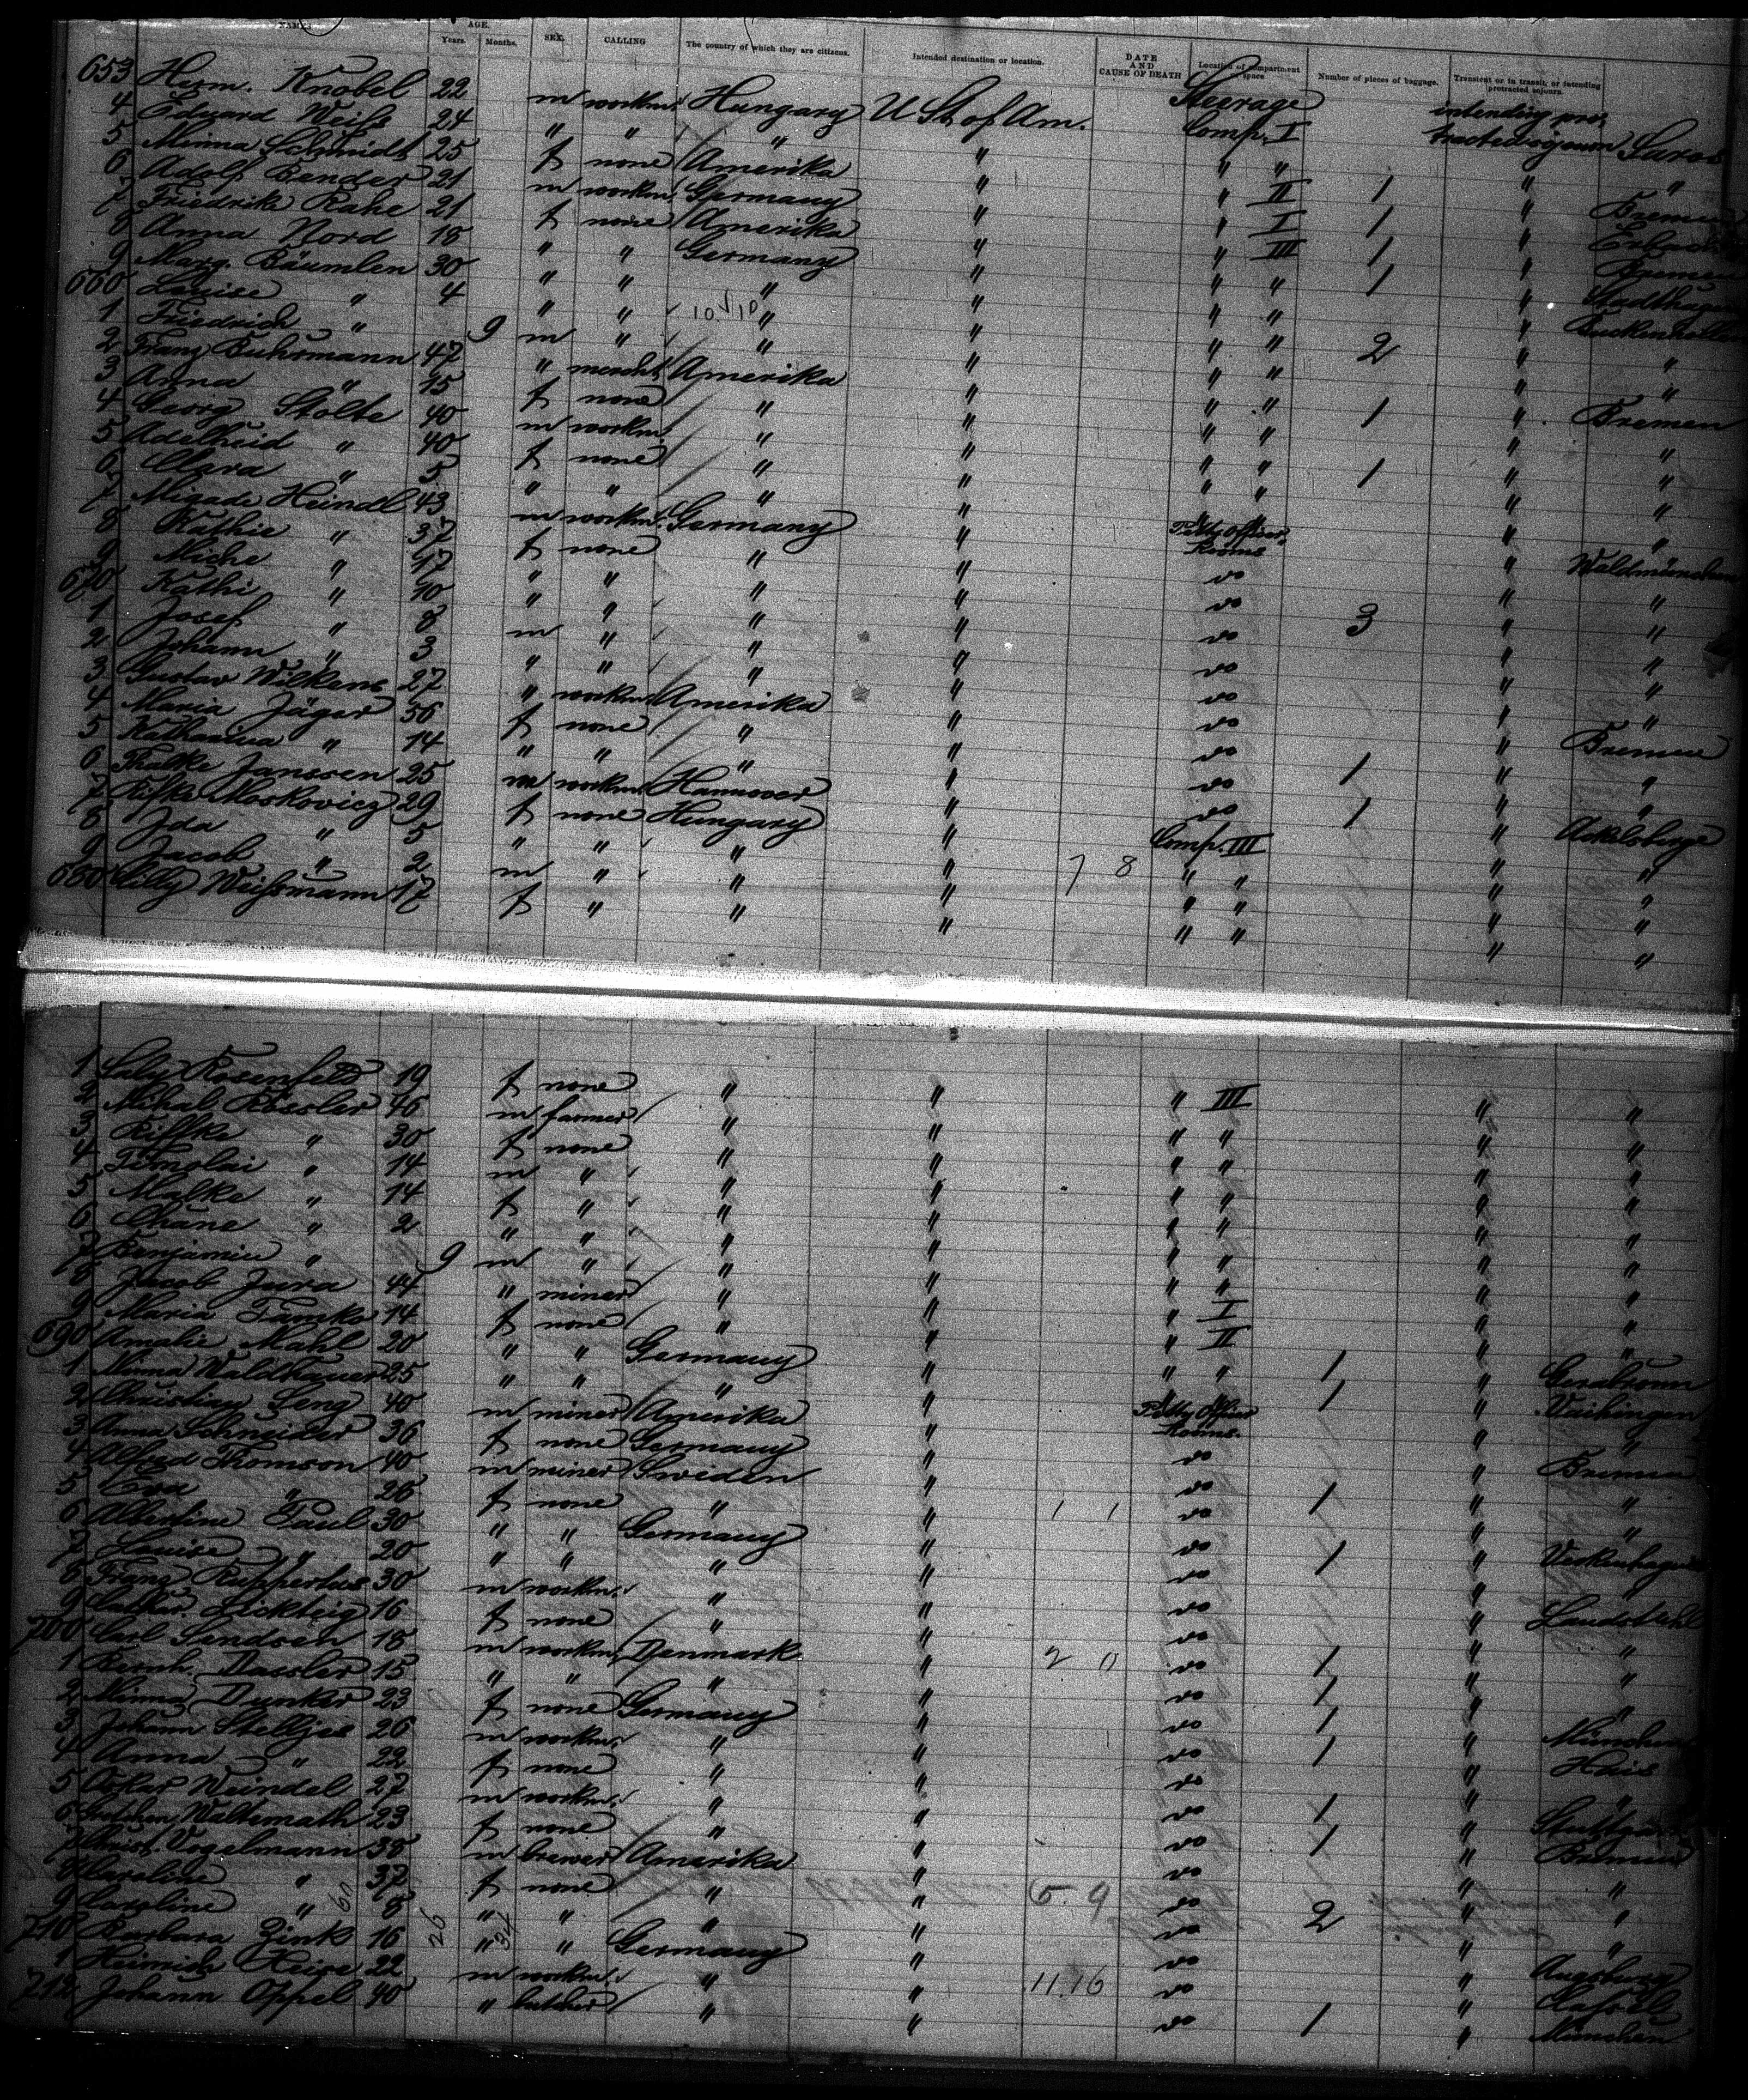 NAMES. AGE. Years. Months. SEX. CALLING The country of which they are citizens. Intended destination or location. DATE AND CAUSE OF DEATH Location of compartment or space Number of pieces of baggage. Transient or in transit, or intending protracted sojourn.
653 Herm. Knobel 22 m workm. Hungary U St of Am. Steerage intending pro-
4 Eduard Weiß 24 " " " " Comp. I tracted sojourn Saros
5 Minna Schmidt 25 f none Amerika " " " " "
6 Adolf Bender 21 m workm. Germany " " II 1 " Bremen
7 Friedrike Rahe 21 f none Amerika " " I 1 "
8 Anna Nord 18 " " Germany " " III 1 " Bremen
9 Marg. Bäumlen 30 " " " " " " 1 " Stadthagen
660 Louise " 4 " " " " " " "
1 Friedrich " 9 m " " " " " 2 " "
2 Franz Buhrmann 47 " mercht. Amerika " " " " "
3 Anna " 15 f none " " " " 1 " Bremen
4 Georg Stolte 40 m workm. " " " " " "
5 Adelheid " 40 f none " " " " 1 " "
6 Clara " 5 " " " " " " " "
7 Heindl 43 m workm. Germany " Petty Officer Rooms " "
8 Kathie " 37 f none " " do Waldmünchen
9 Miche " 17 " " " " do " "
670 Kathi " 10 " " " " do 3 " "
1 Josef " 8 m " " " do " "
2 Johann " 3 " " " " do " "
3 Gustav Wilkens 27 " workm. Amerika " do " "
4 Maria Jäger 56 f none " " do " Bremen
5 Katharina " 14 " " " " do 1 " "
6 Janssen 25 m workm. Hannover " do " "
7 Rifke Moskovicz 29 f none Hungary " 1 "
8 Ida " 5 " " " " Comp. III " "
9 Jacob " 2 m " " " 7 8 " " " "
680 Lilly Weißmann 17 f " " " " " " "
1 Rosenfeld 19 f none " " " III " "
2 Mihal Rössler 46 m farmer " " " " " "
3 Riffke " 30 f none " " " " " "
4 " 14 m " " " " " " "
5 Malke " 14 f " " " " " " "
6 Chane " 2 " " " " " " " "
7 Benjamin " 9 m " " " " " " "
8 Jacob Jura 44 " miner " " " I " "
9 Maria 14 f none " " " II " "
690 Amalie Mahl 20 " " Germany " " " 1 "
1 Minna Waldhauer 25 " " " " 1 " Vaihingen
2 Christian Seng 40 m miner Amerika " Petty Officer Rooms " "
3 Anna Schneider 36 f none Germany " do " Bremen
4 Alfred Thomson 40 m miner Sweden " do 1 " "
5 Eva " 26 f none " " 1 1 do " "
6 Albertine Paul 30 " " Germany " do 1 "
7 Louise " 20 " " " " do "
8 Franz Ruppertus 30 m workm. " " do " Landstuhl
9 Lickteig 16 f none " " do " "
700 Carl Sendsen 18 m workm. Denmark " 2 0 do 1 " "
1 Bernh. Dassler 15 " " " " do 1 " "
2 Minna Dunker 23 f none Germany " do 1 " München
3 Johann Stelljes 26 m workm. " " do 1 "
4 Anna " 22 f none " " do " "
5 Oskar Weindel 27 m workm. " " do 1 " Stuttgart
6 Gretchen Waltemath 23 f none " " do 1 " Bremen
7 Christ. Vogelmann 38 m brewer Amerika " do " "
8 Caroline " 37 f none " " 5 9 do 2 " "
9 Caroline " 8 " " " " do " "
710 Barbara Zink 16 " " Germany " do " Augsburg
1 Heinrich Heise 22 m workm. " " 11 16 do " Cassel
712 Johann Oppel 40 " butcher " " do 1 " München